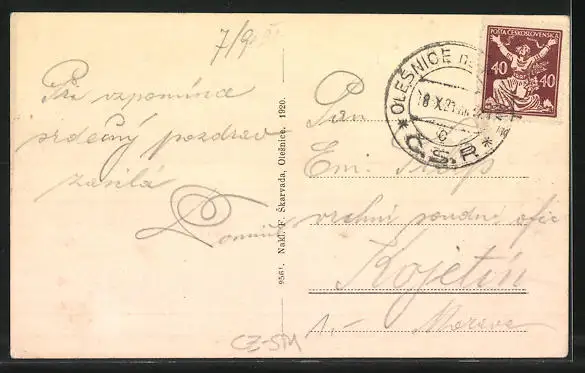 7/9
Při vzpomínce
srdečný pozdrav
zasílá
9561. Nakl. F. Škarvada, Olešnice. 1920.
POŠTA ČESKOSLOVENSKÁ
40 40
OLEŠNICE
18 X. 21
C
* Č.S.R. *
Pan
Em.
vrchní soudní ofic
Kojetín
Morava
1.-
CZ-SM